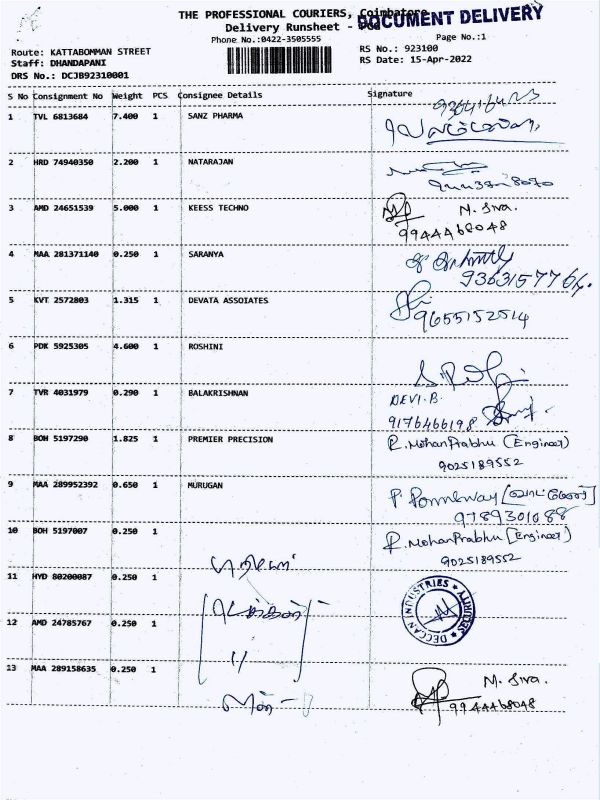 THE PROFESSIONAL COURIERS, Coimbatore
DOCUMENT DELIVERY
Delivery Runsheet -
Phone No.:0422-3505555
Page No.:1
Route: KATTABOMMAN STREET
RS No.: 923100
Staff: DHANDAPANI
RS Date: 15-Apr-2022
DRS No.: DCJB92310001
S No Consignment No Weight PCS Consignee Details Signature
1 TVL 6813684 7.400 1 SANZ PHARMA
2 HRD 74940350 2.200 1 NATARAJAN
3 AMD 24651539 5.000 1 KEESS TECHNO M. Siva.
9944468048
4 MAA 281371140 0.250 1 SARANYA
9363157764
5 KVT 2572803 1.315 1 DEVATA ASSOIATES
9655152514
6 PDK 5925305 4.600 1 ROSHINI
7 TVR 4031979 0.290 1 BALAKRISHNAN DEVI.B
9176466198
8 BOH 5197290 1.825 1 PREMIER PRECISION R. MohanPrabhu (Engineer)
9025189552
9 MAA 289952392 0.650 1 MURUGAN
9789301088
10 BOH 5197007 0.250 1 R. MohanPrabhu [Engineer]
9025189552
11 HYD 80200087 0.250 1
DECCAN INDUSTRIES
12 AMD 24785767 0.250 1
13 MAA 289158635 0.250 1 M. Siva.
9944468048